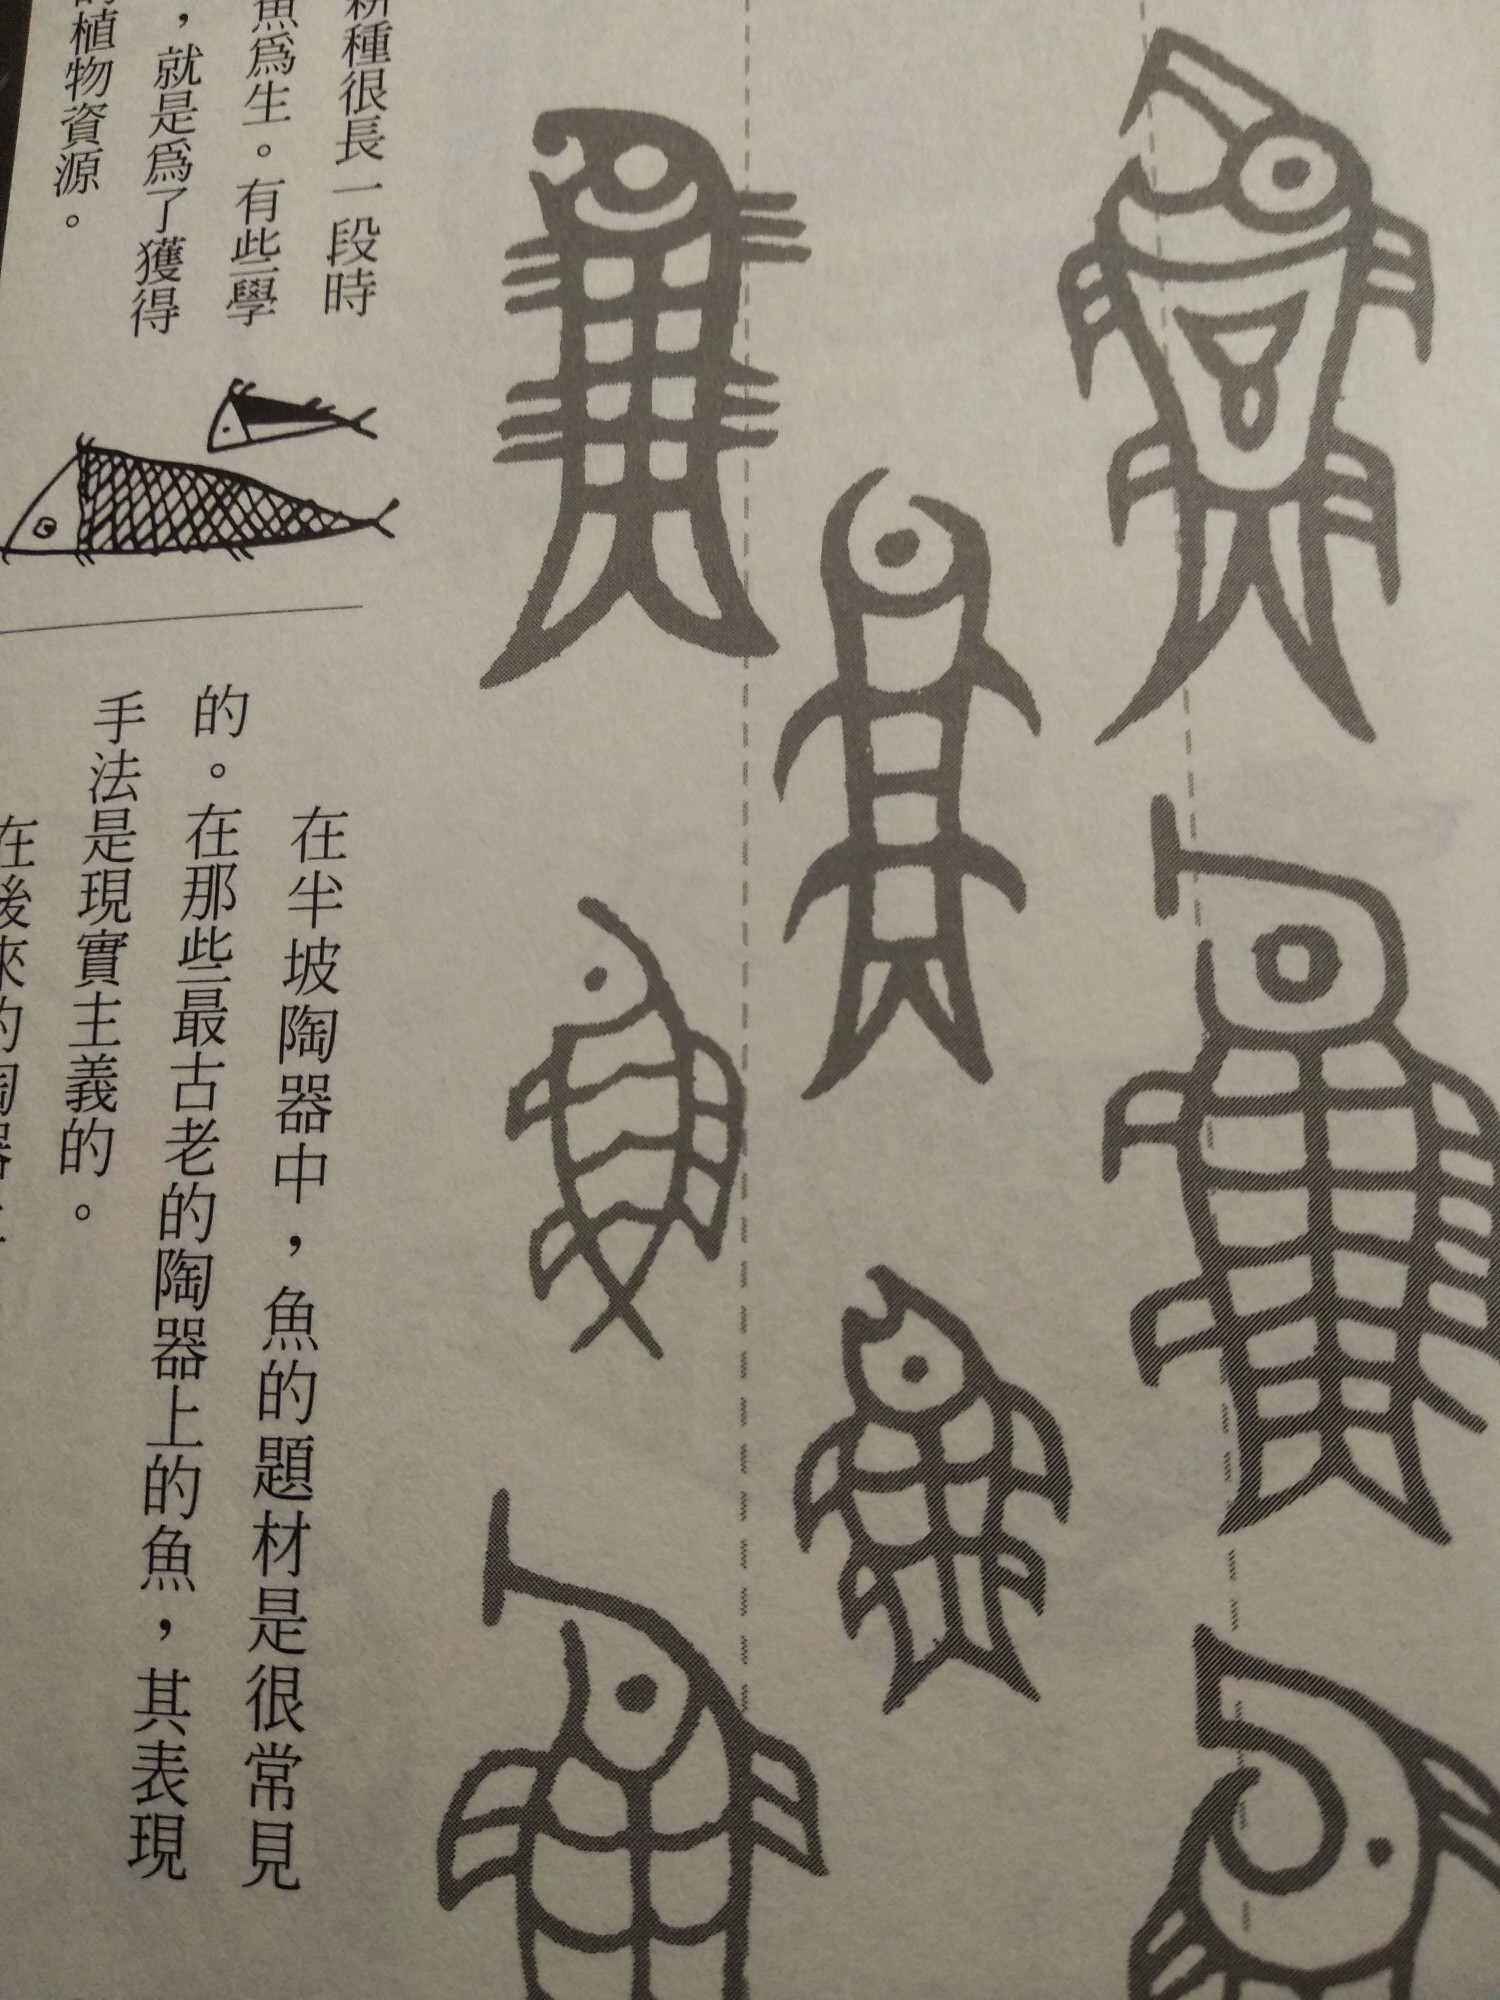 種很長一段時
魚爲生。有些學
，就是爲了獲得
植物資源。
在半坡陶器中，魚的題材是很常見
的。在那些最古老的陶器上的魚，其表現
手法是現實主義的。
在後來的陶器上